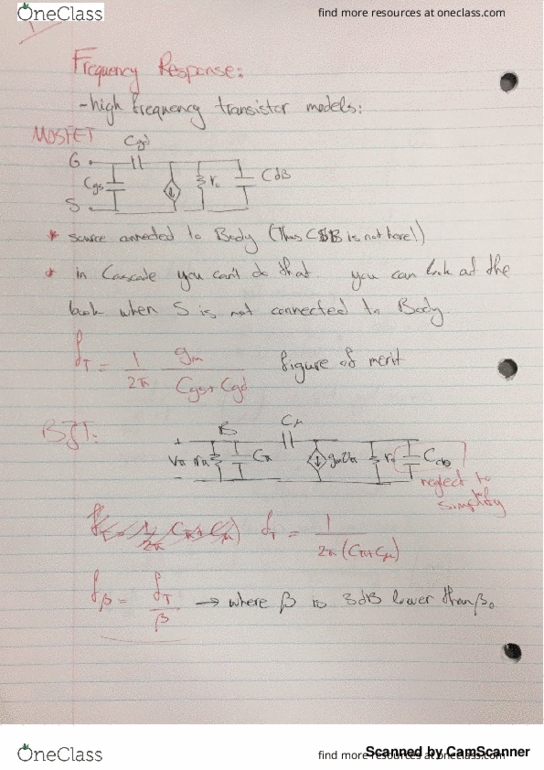 OneClass
find more resources at oneclass.com
1
Frequency Response:
-high frequency transistor models:
MOSFET
Cgd
G
Cgs
ro
CdB
S
* source connected to Body (Thus CSB is not here!)
* in Cascade you can't do that you can look at the
book when S is not connected to Body.
fT = 1/2π gm/(Cgs+Cgd) figure of merit
BJT:
B
Cμ
Vπ rπ Cπ gmVπ ro
neglect to
simplify
fT = 1/(2π(Cπ+Cμ))
fβ = fT/β → where β is 3dB lower than β₀
OneClass
find more resources at oneclass.com
Scanned by CamScanner